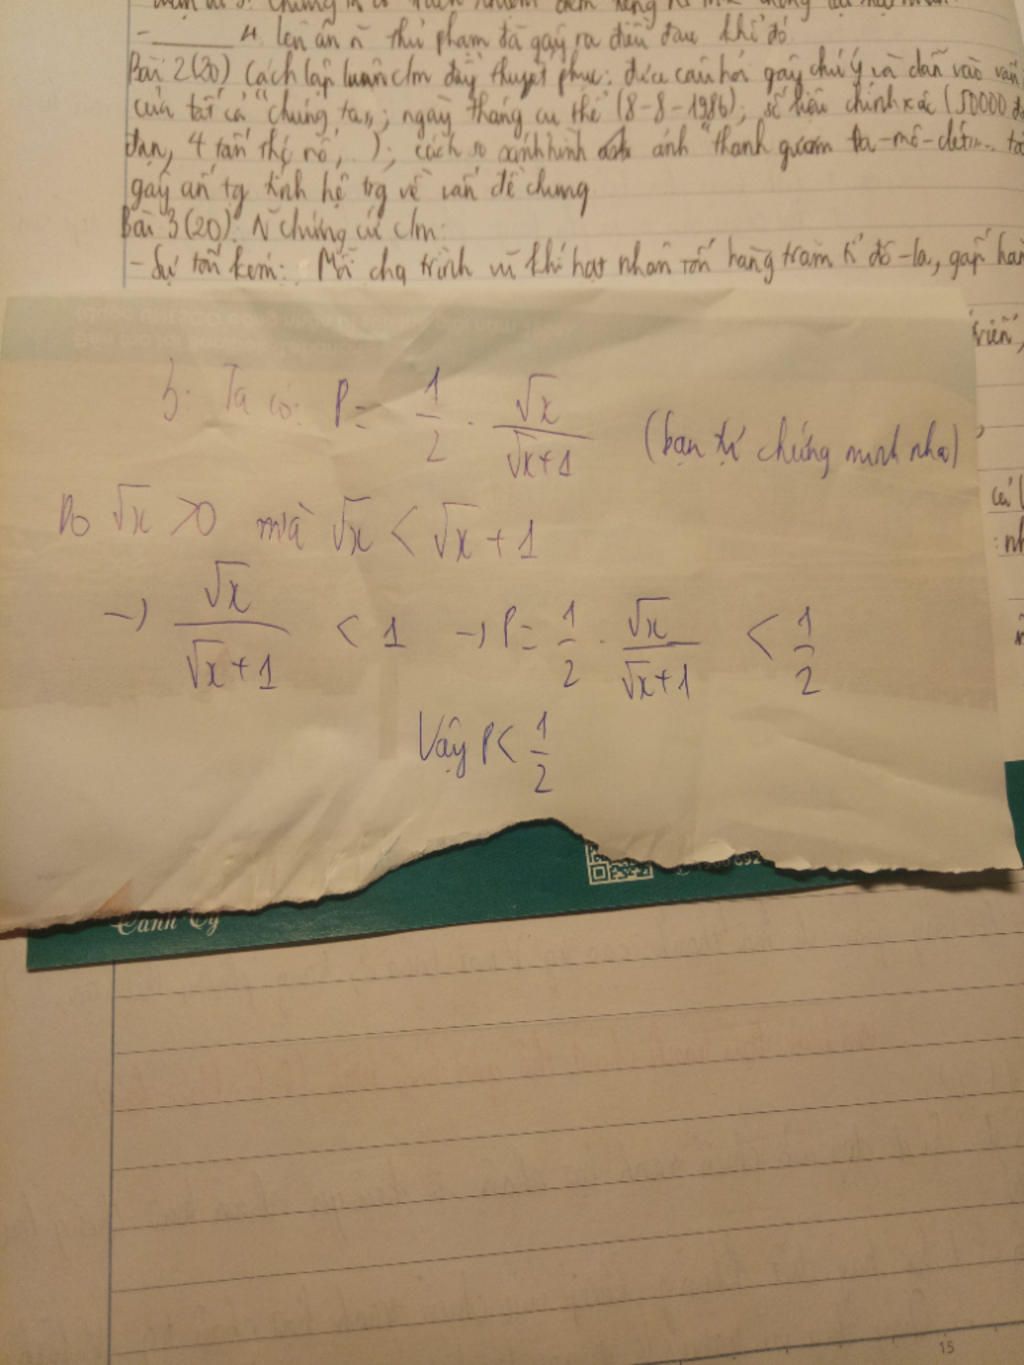 4. lên án ~ thủ phạm đã gây ra điều đau khổ đó
Bài 2(20) Cách lập luận c/m đầy thuyết phục: đưa câu hỏi gây chú ý và dẫn vào vấn
của tất cả "chúng ta"; ngày tháng cụ thể (8-8-1986); số liệu chính xác (50000 đ
đạn, 4 tấn thuốc nổ, ); cách so sánh hình ảnh "thanh gươm Đa-mô-clét...
gây ấn tg tính hệ trg về vấn đề chung
Bài 3(20). ~ chứng cứ c/m:
- Sự tốn kém: Mỗi chg trình vũ khí hạt nhân tốn hàng trăm tỉ đô-la, gấp hàn
b. Ta có: P = 1/2 . √x/(√x+1) (bạn tự chứng minh nha)
Do √x > 0 mà √x < √x + 1
→ √x/(√x+1) < 1 → P = 1/2 . √x/(√x+1) < 1/2
Vậy P < 1/2
15